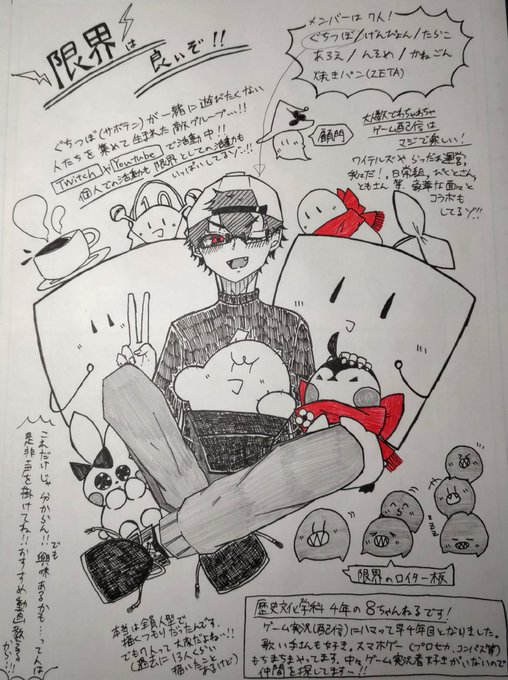 限界は
良いぞ!!
ぐちつぼ(サボテン)が一緒に遊びたくない
人たちを集めて生まれた敵グループ…!!
TwitchやYouTubeで活動中!!
個人での活動も限界としての活動も
いっぱいしてるゾ…!!
メンバーは7人!
ぐちつぼ/げんぴょん/たらこ
あろえ/んそめ/かねごん
焼きパン(ZETA)
顧問
大人数でわちゃわちゃ
ゲーム配信は
マジで楽しい!
ワイテルズやらっだぁ運営、
日常組、
等 豪華な面々と
コラボも
してるゾ!!!
これだけじゃ分からん!!でも
興味あるかも…って人は
是非声を掛けてね!!おすすめ動画教えるから!!
限界のロイター板
本当は全員人型で
描くつもりだったんです。
でも7人って大変だよね…!!
(過去に13人くらい
描いたこと
あるけど)
歴史文化学科4年の8ちゃんねるです!
ゲーム実況(配信)にハマって早4年目となりました。
歌い手さんも好き。スマホゲー(プロセカ、コンパス等)
もちまちまやってます。中々ゲーム実況者好きがいないので
仲間を探してます…!!